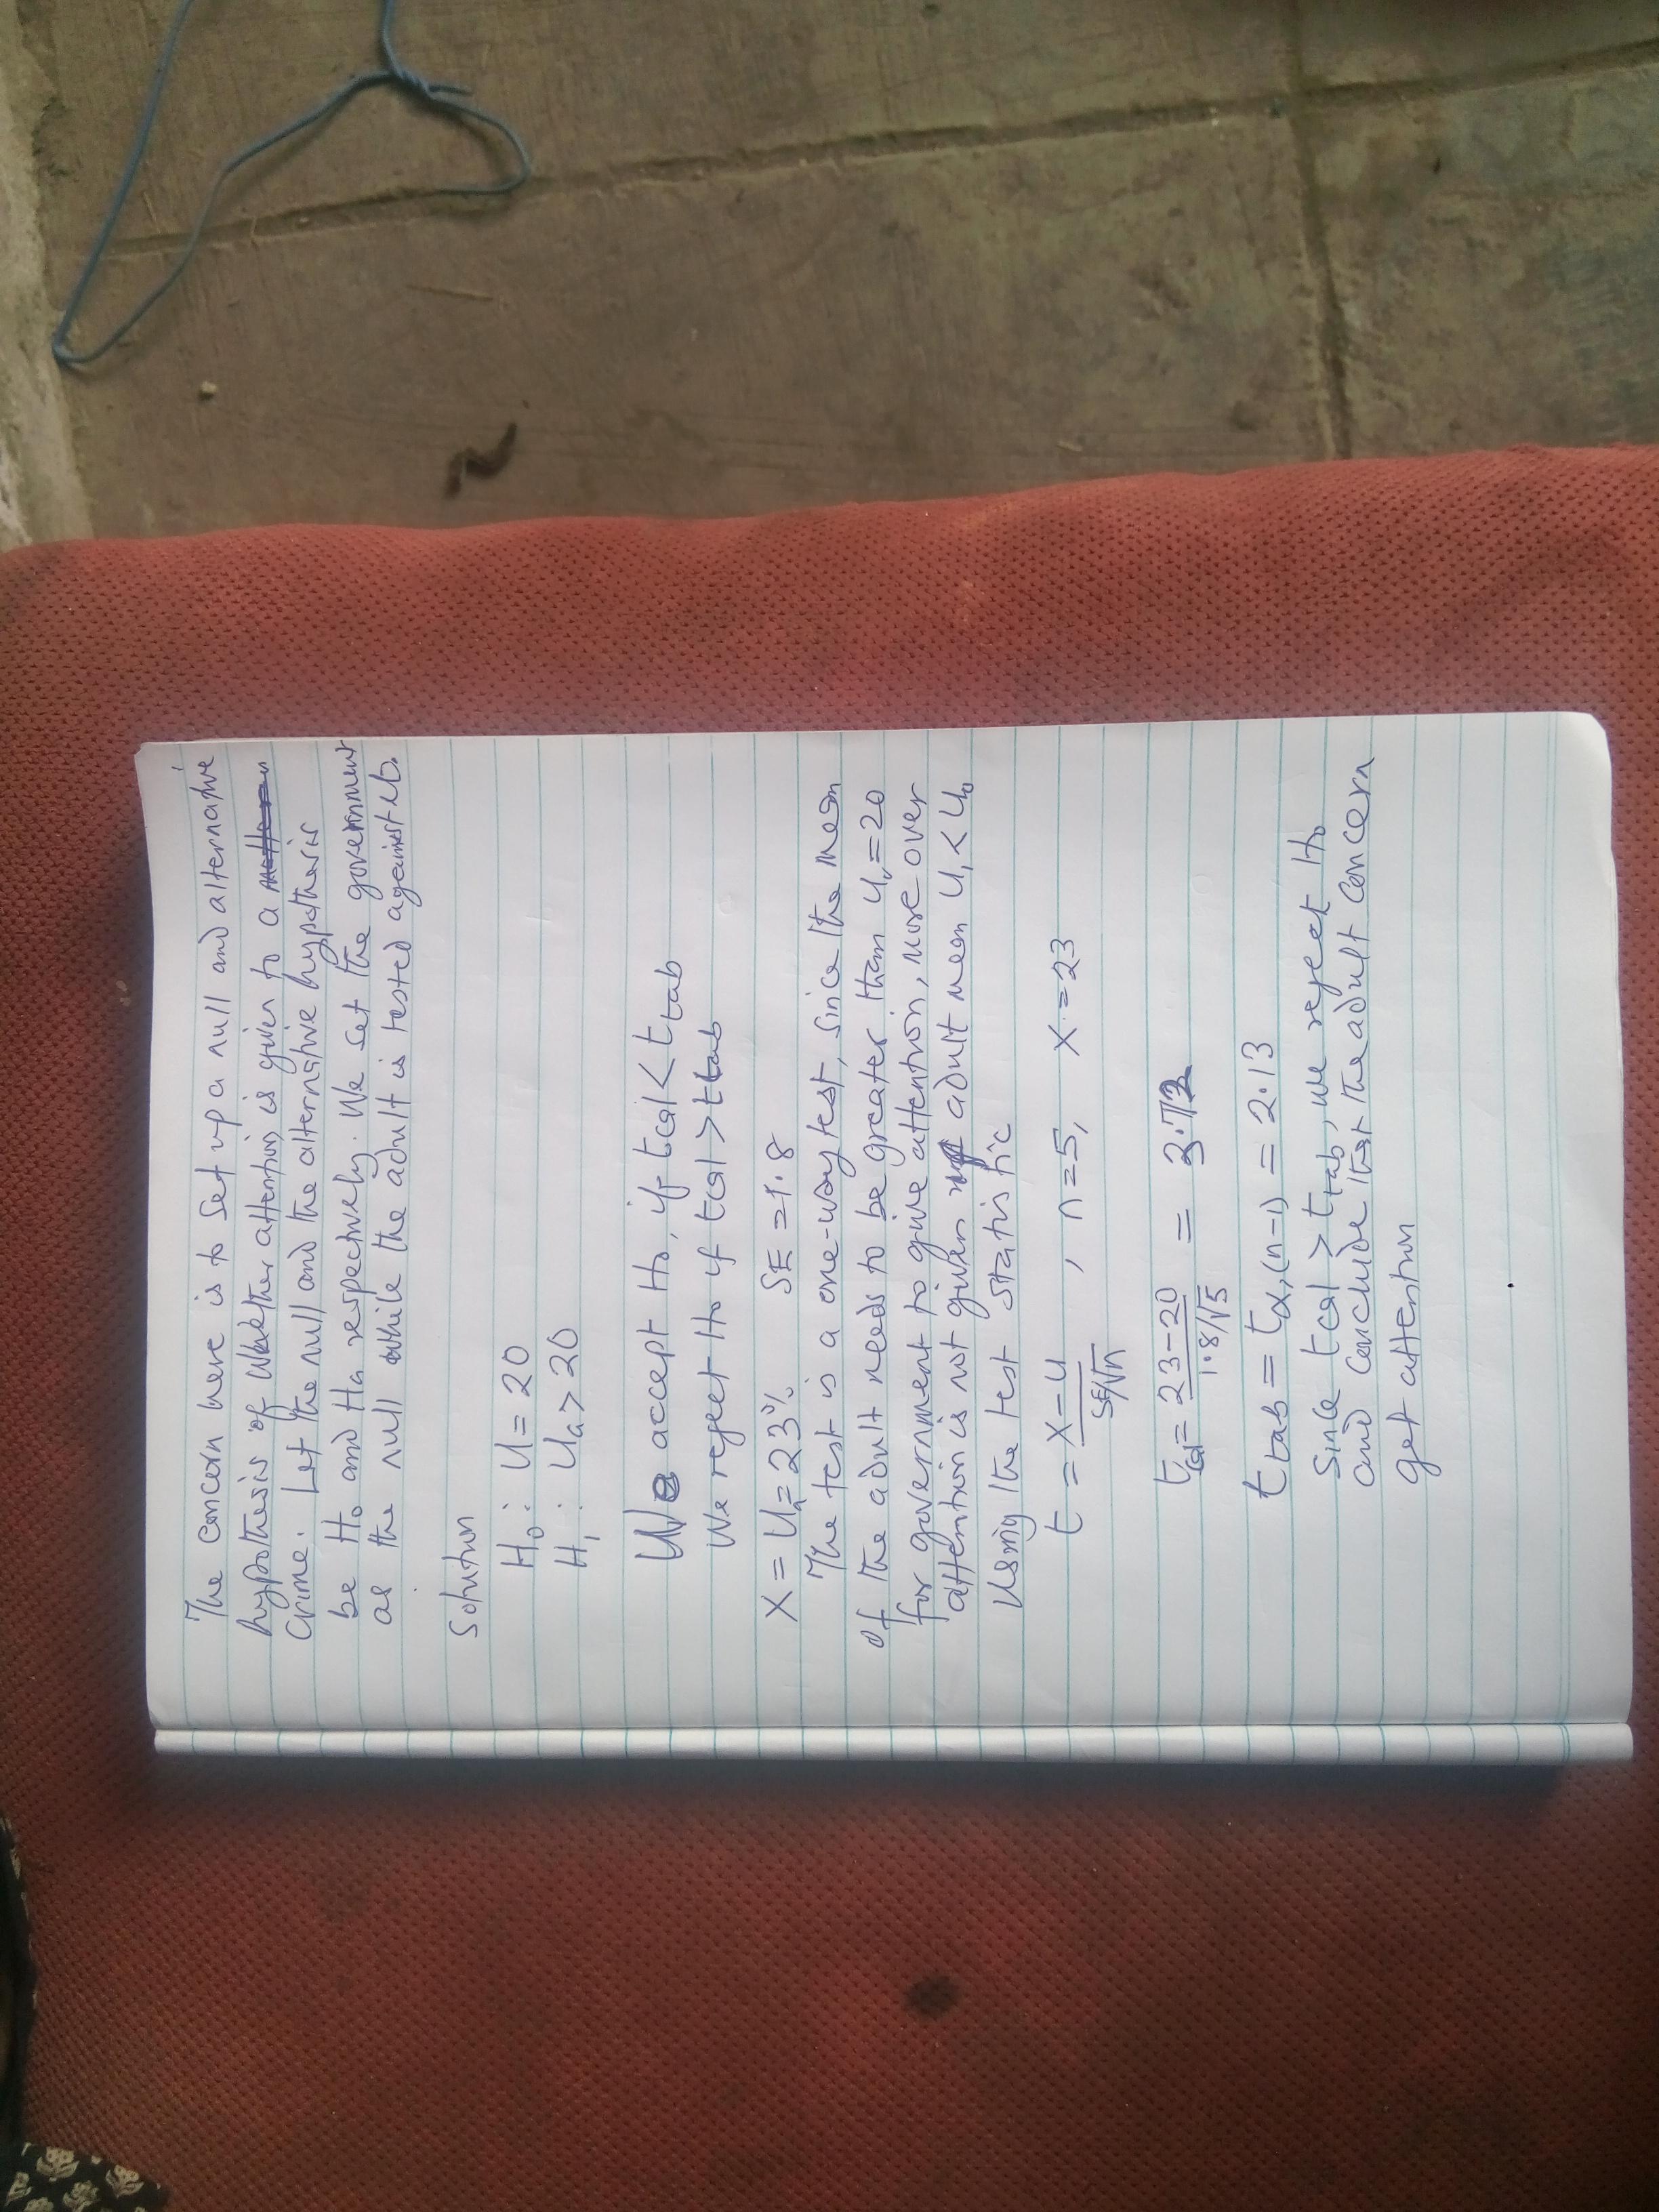 The concern here is to set up a null and alternative
hypothesis of whether attention is given to a
crime. Let the null and the alternative hypothesis
be Ho and Ha respectively. We set the government
as the null while the adult is tested against Uo.
Solution
H₀: U = 20
H₁: Ua > 20
We accept Ho, if tcal < ttab
We reject Ho if tcal > ttab
X = Ua = 23% SE = 1.8
The test is a one-way test, since the mean
of the adult needs to be greater than U₀ = 20
for government to give attention, more over
attention is not given if adult mean U₁ < U₀
Using the test statistic
t = X - U / SE/√n , n = 5, X = 23
tcal = 23 - 20 / 1.8/√5 = 3.72
ttab = tα,(n-1) = 2.13
Since tcal > ttab, we reject Ho
and conclude that the adult concern
get attention